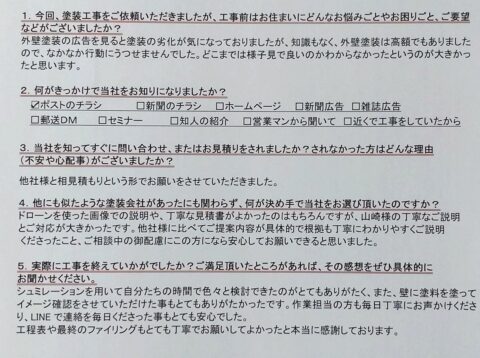 1. 今回、塗装工事をご依頼いただきましたが、工事前はお住まいにどんなお悩みごとやお困りごと、ご要望
などがございましたか?
外壁塗装の広告を見ると塗装の劣化が気になっておりましたが、知識もなく、外壁塗装は高額でもありました
ので、なかなか行動にうつせませんでした。どこまでは様子見で良いのかわからなかったというのが大きかっ
たと思います。
2. 何がきっかけで当社をお知りになりましたか?
☑ポストのチラシ □新聞のチラシ □ホームページ □新聞広告 □雑誌広告
□郵送DM □セミナー □知人の紹介 □営業マンから聞いて □近くで工事をしていたから
3. 当社を知ってすぐに問い合わせ、またはお見積りをされましたか? されなかった方はどんな理由
(不安や心配事)がございましたか?
他社様と相見積もりという形でお願いをさせていただきました。
4. 他にも似たような塗装会社があったにも関わらず、何が決め手で当社をお選び頂いたのですか?
ドローンを使った画像での説明や、丁寧な見積書がよかったのはもちろんですが、山崎様の丁寧なご説明
とご対応が大きかったです。他社様に比べてご提案内容が具体的で根拠も丁寧にわかりやすくご説明
くださったこと、ご相談中の御配慮にこの方になら安心してお願いできると思いました。
5. 実際に工事を終えていかがでしたか? ご満足頂いたところがあれば、その感想をぜひ具体的に
お聞かせください。
シュミレーションを用いて自分たちの時間で色々と検討できたのがとてもありがたく、また、壁に塗料を塗って
イメージ確認をさせていただけた事もとてもありがたかったです。作業担当の方も毎日丁寧にお声かけくださ
り、LINEで連絡を毎日くださった事もとても安心でした。
工程表や最終のファイリングもとても丁寧でお願いしてよかったと本当に感謝しております。